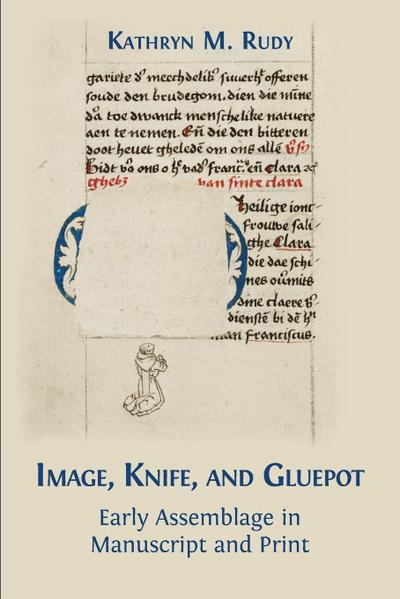 KATHRYN M. RUDY
gariete d' meechdelik' suuerh' offeren
soude den brudegom. dien die mine
da toe dwanck menschelike natuere
aen te nemen. En die den bitteren
doot heuet gheleden om ons alle
Bidt vo ons o h' vad' franc'. en Clara
ghebz van sinte clara
Heilige ionc
frouwe sali
ghe Clara
die dae schi
nes
dine claere
dienste bi de
Franciscus.
IMAGE, KNIFE, AND GLUEPOT
Early Assemblage in
Manuscript and Print